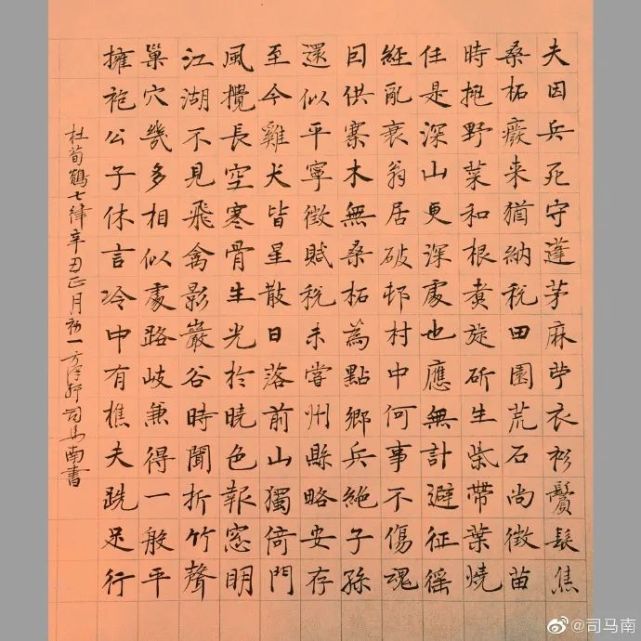 夫因兵死守蓬茅麻苧衣衫鬢髮焦
桑柘廢来猶納税田園荒石尚徵苗
時挑野菜和根煮旋斫生柴帶葉燒
任是深山更深處也應無計避征徭
經亂衰翁居破邨村中何事不傷魂
因供寨木無桑柘為點鄉兵絶子孫
還似平寧徵賦税未嘗州縣略安存
至今雞犬皆星散日落前山獨倚門
風攪長空寒骨生光於曉色報窓明
江湖不見飛禽影巖谷時聞折竹聲
巢穴幾多相似處路岐兼得一般平
擁袍公子休言冷中有樵夫跣足行
杜荀鶴七律辛丑正月初一司马南書
@司马南